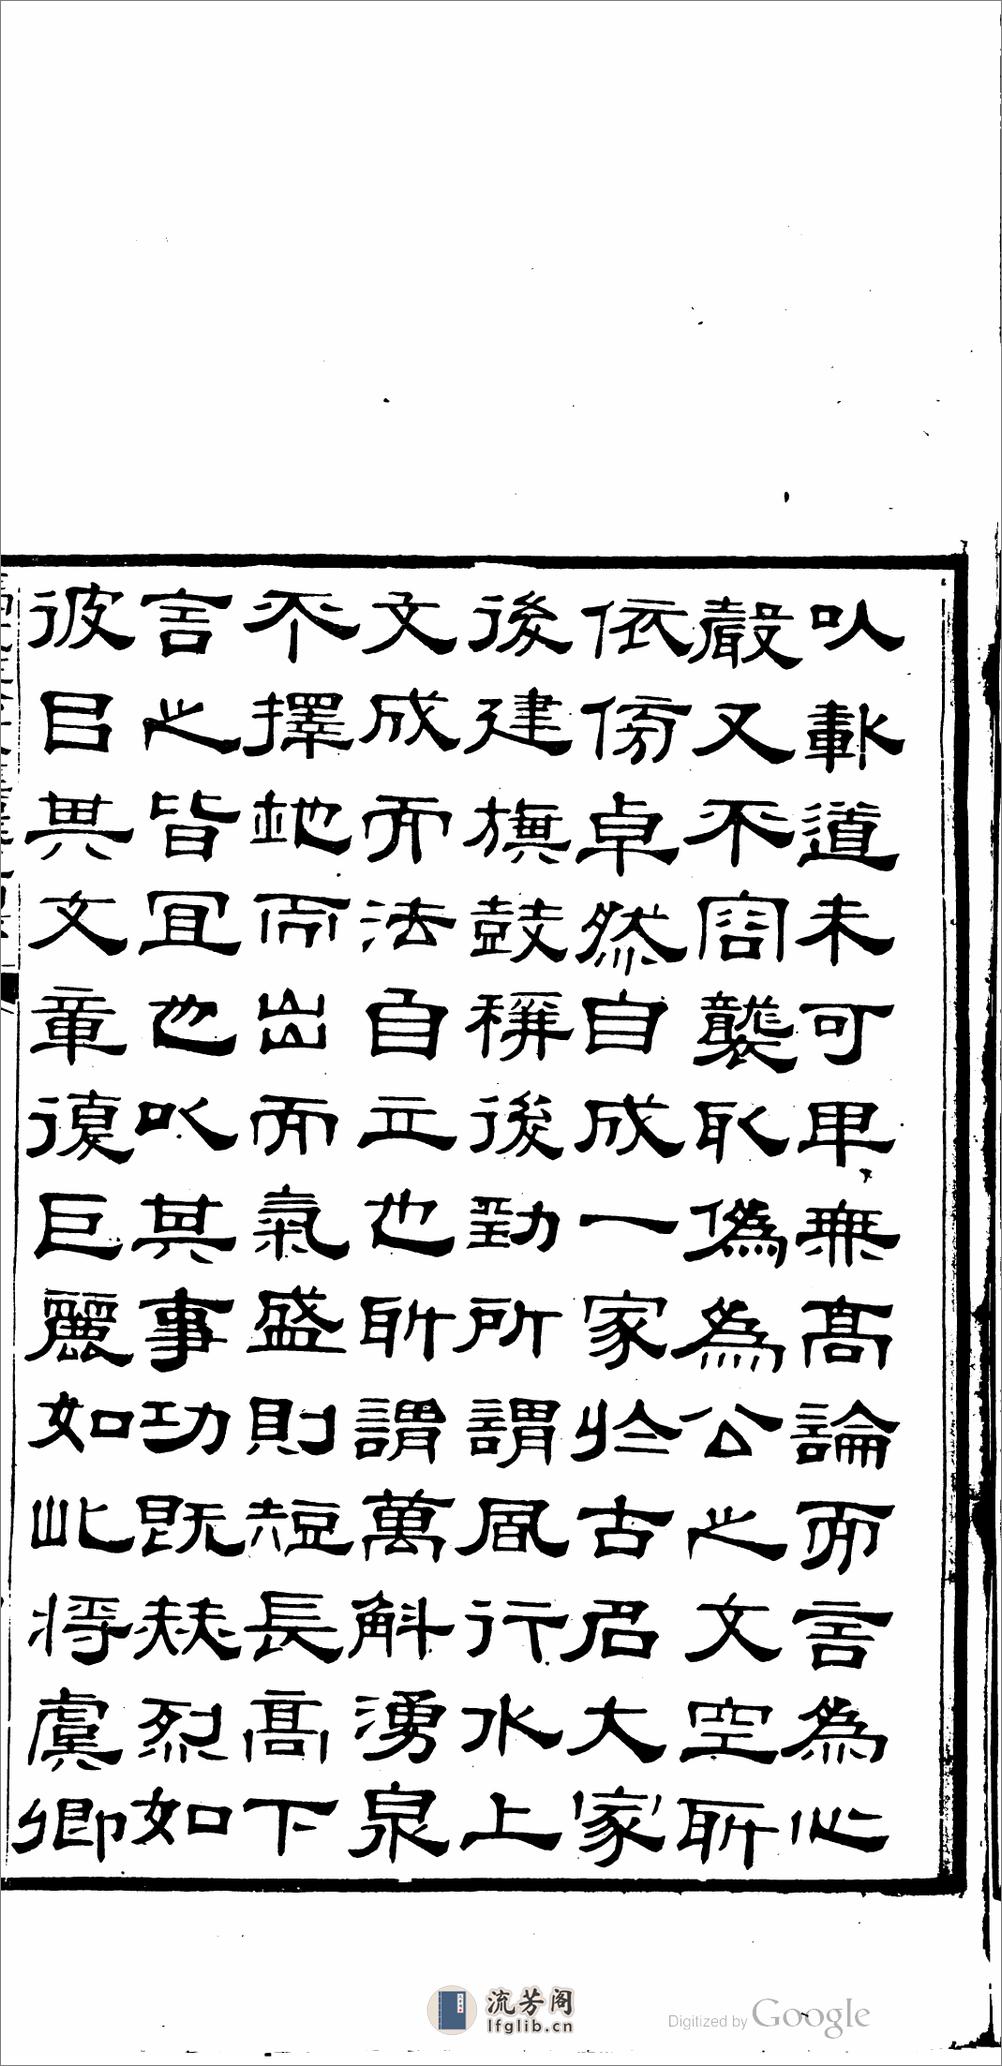 以載道未可卑無高論而言為心
聲又不容襲取偽為公之文空所
依傍卓然自成一家於古名大家
後建旗鼓稱後勁所謂風行水上
文成而法自立也所謂萬斛湧泉
不擇地而出而氣盛則短長高下
言之皆宜也以其事功既赫烈如
彼目其文章復巨麗如此將虞卿
流芳阁
lfglib.cn
Digitized by Google